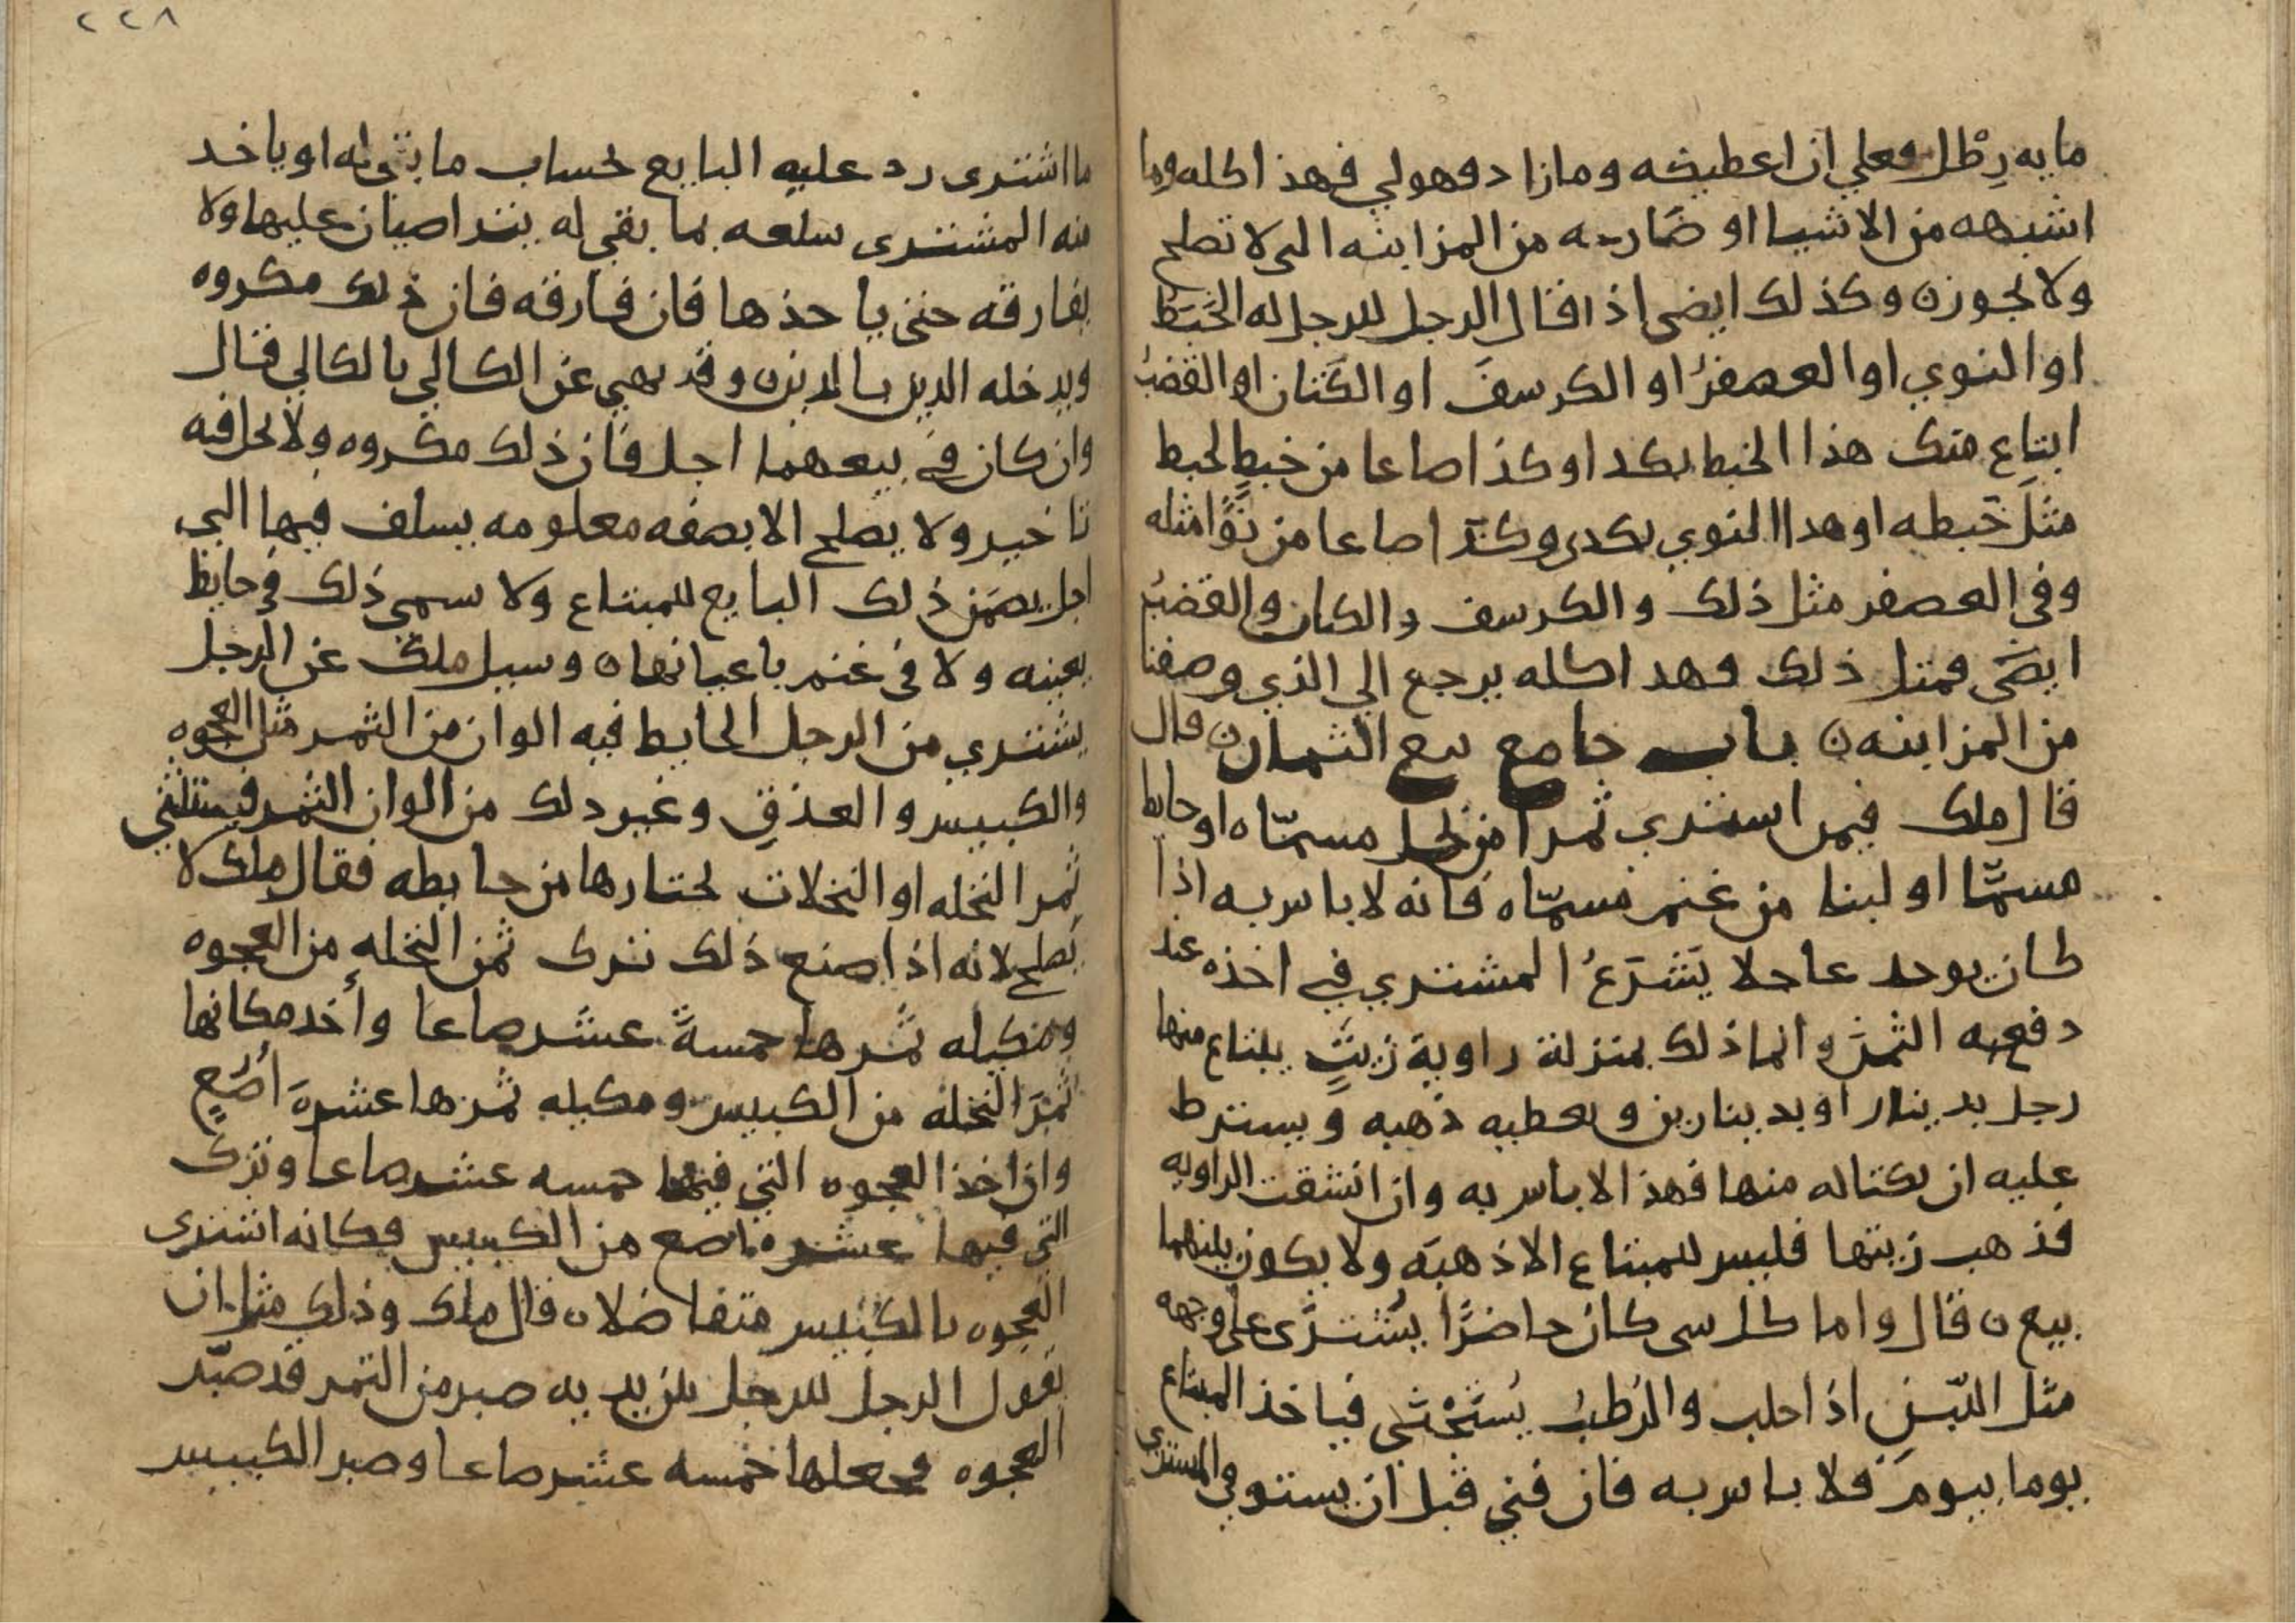 مايه رِطْل فعلي ان اعطيكه ومازاد فهولي فهذا كله وما
اشبهه من الاشيا او ضارعه من المزابنه التي لا تصلح
ولا تجوز ن وكذلك ايضى اذا قال الرجل للرجل له الخَبَط
او النوي او العصفرُ او الكرسفَ او الكَتان او القضبُ
ابتاع منك هذا الخبط بكدا وكذا صاعا من خبطٍ يخبط
مثلَ خَبطه او هدا النوي بكدى وكذا صاعا من نَوًا مثله
وفى العصفر مثل ذلك والكرسف والكتان والقضبُ
ايضَى فمثل ذلك فهدا كله يرجع الي الذي وصفنا
من المزابنه ن باب جامع بيع الثمار ن قال
قال ملك فيمر اشتري ثمرا من نخل مسمّاه او حايط
مسمَّا او لبنا من غنم مسمّاه فانه لا باس به اذا
كان يوخد عاجلا يَشرَعُ المشتري في اخذه عند
دفعه الثمنَ وانما ذلك بمنزلة راوية زيتٍ يبتاع منها
رجل بدينار او بدينارين ويعطيه ذهبه ويشترط
عليه ان يكتاله منها فهذا لا باس به وان انشقت الراويه
فذهب زيتها فليس للمبتاع الا ذهبَه ولا يكون بينهما
بيع ن قال واما كل شى كان حاضرًا يُشترَى على وجهه
مثل اللّبنِ اذا حلب والرُطبُ يُستَجْنى فياخذ المبتاع
يوما بيومَ فلا باس به فان فني قبل ان يستوفي المشتري
٢٢٨
ما اشترى رد عليه البايع بحساب ما بقي له او ياخد
منه المشترى سلعه بما بقي له يتراضيان عليها ولا
يفارقه حتى ياخذها فان فارقه فان ذلك مكروه
ويدخله الدين بالدين ن وقد نهي عن الكالي بالكالي قال
وان كان في بيعهما اجل فان ذلك مكروه ولا يحل فيه
تاخير ولا يصلح الا بصفه معلومه يسلف فيها الي
اجل يضمَن ذلك البايع للمبتاع ولا يسمي ذلك في حايط
بعينه ولا في غنم باعيانها ن وسيل ملك عن الرجل
يشتري من الرجل الحايط فيه الوان من الثمر مثل العجوه
والكبيس والعذقِ وغير دلك من الوان الثمر فيستثني
ثمر النخله او النخلات يختارها من حايطه فقال ملك لا
يصلح لانه اذا صنع ذلك ترك ثمن النخله من العجوه
ومكيله ثمرها خمسةَ عشر صاعا وأخد مكانها
ثمَر النخله من الكبيس ومكيله ثمرها عشرهَ اصُعٍ
وان اخذ العجوه التي فيها خمسه عشر صاعا وترك
التي فيها عشره اصع من الكبيس فكانه اشترى
العجوه بالكبيس متفاضلا ن قال ملك وذلك مثل ان
يقول الرجل للرجل بين يديه صبر من التمر قد صبّر
العجوه فجعلها خمسه عشر صاعا وصبر الكبيس